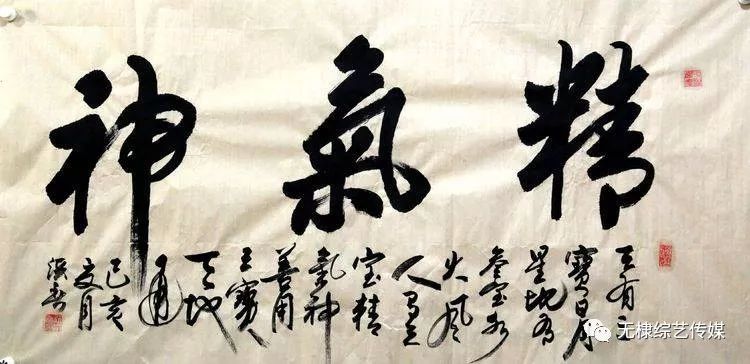 精氣神
天有三
寳日月
星地有
叁宝水
火風
人有三
宝精
氣神
善用
三寳
天地
通
己亥
夏月
无棣综艺传媒